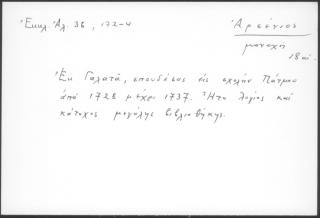 Ἐκκλ. Ἀλ. 36, 172-4
Ἀρσένιος
μοναχὴ
18 αἰ.
Ἐκ Γαλατᾶ, σπουδάσας εἰς σχολὴν Πάτμου
ἀπὸ 1728 μέχρι 1737. Ἦτο λόγιος καὶ
κάτοχος μεγάλης βιβλιοθήκης.